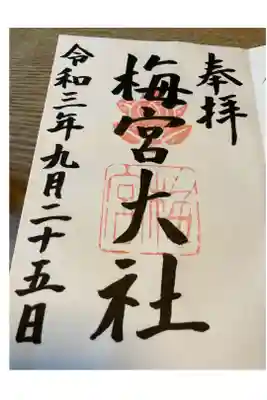 奉拝
梅宮大社
令和三年九月二十五日